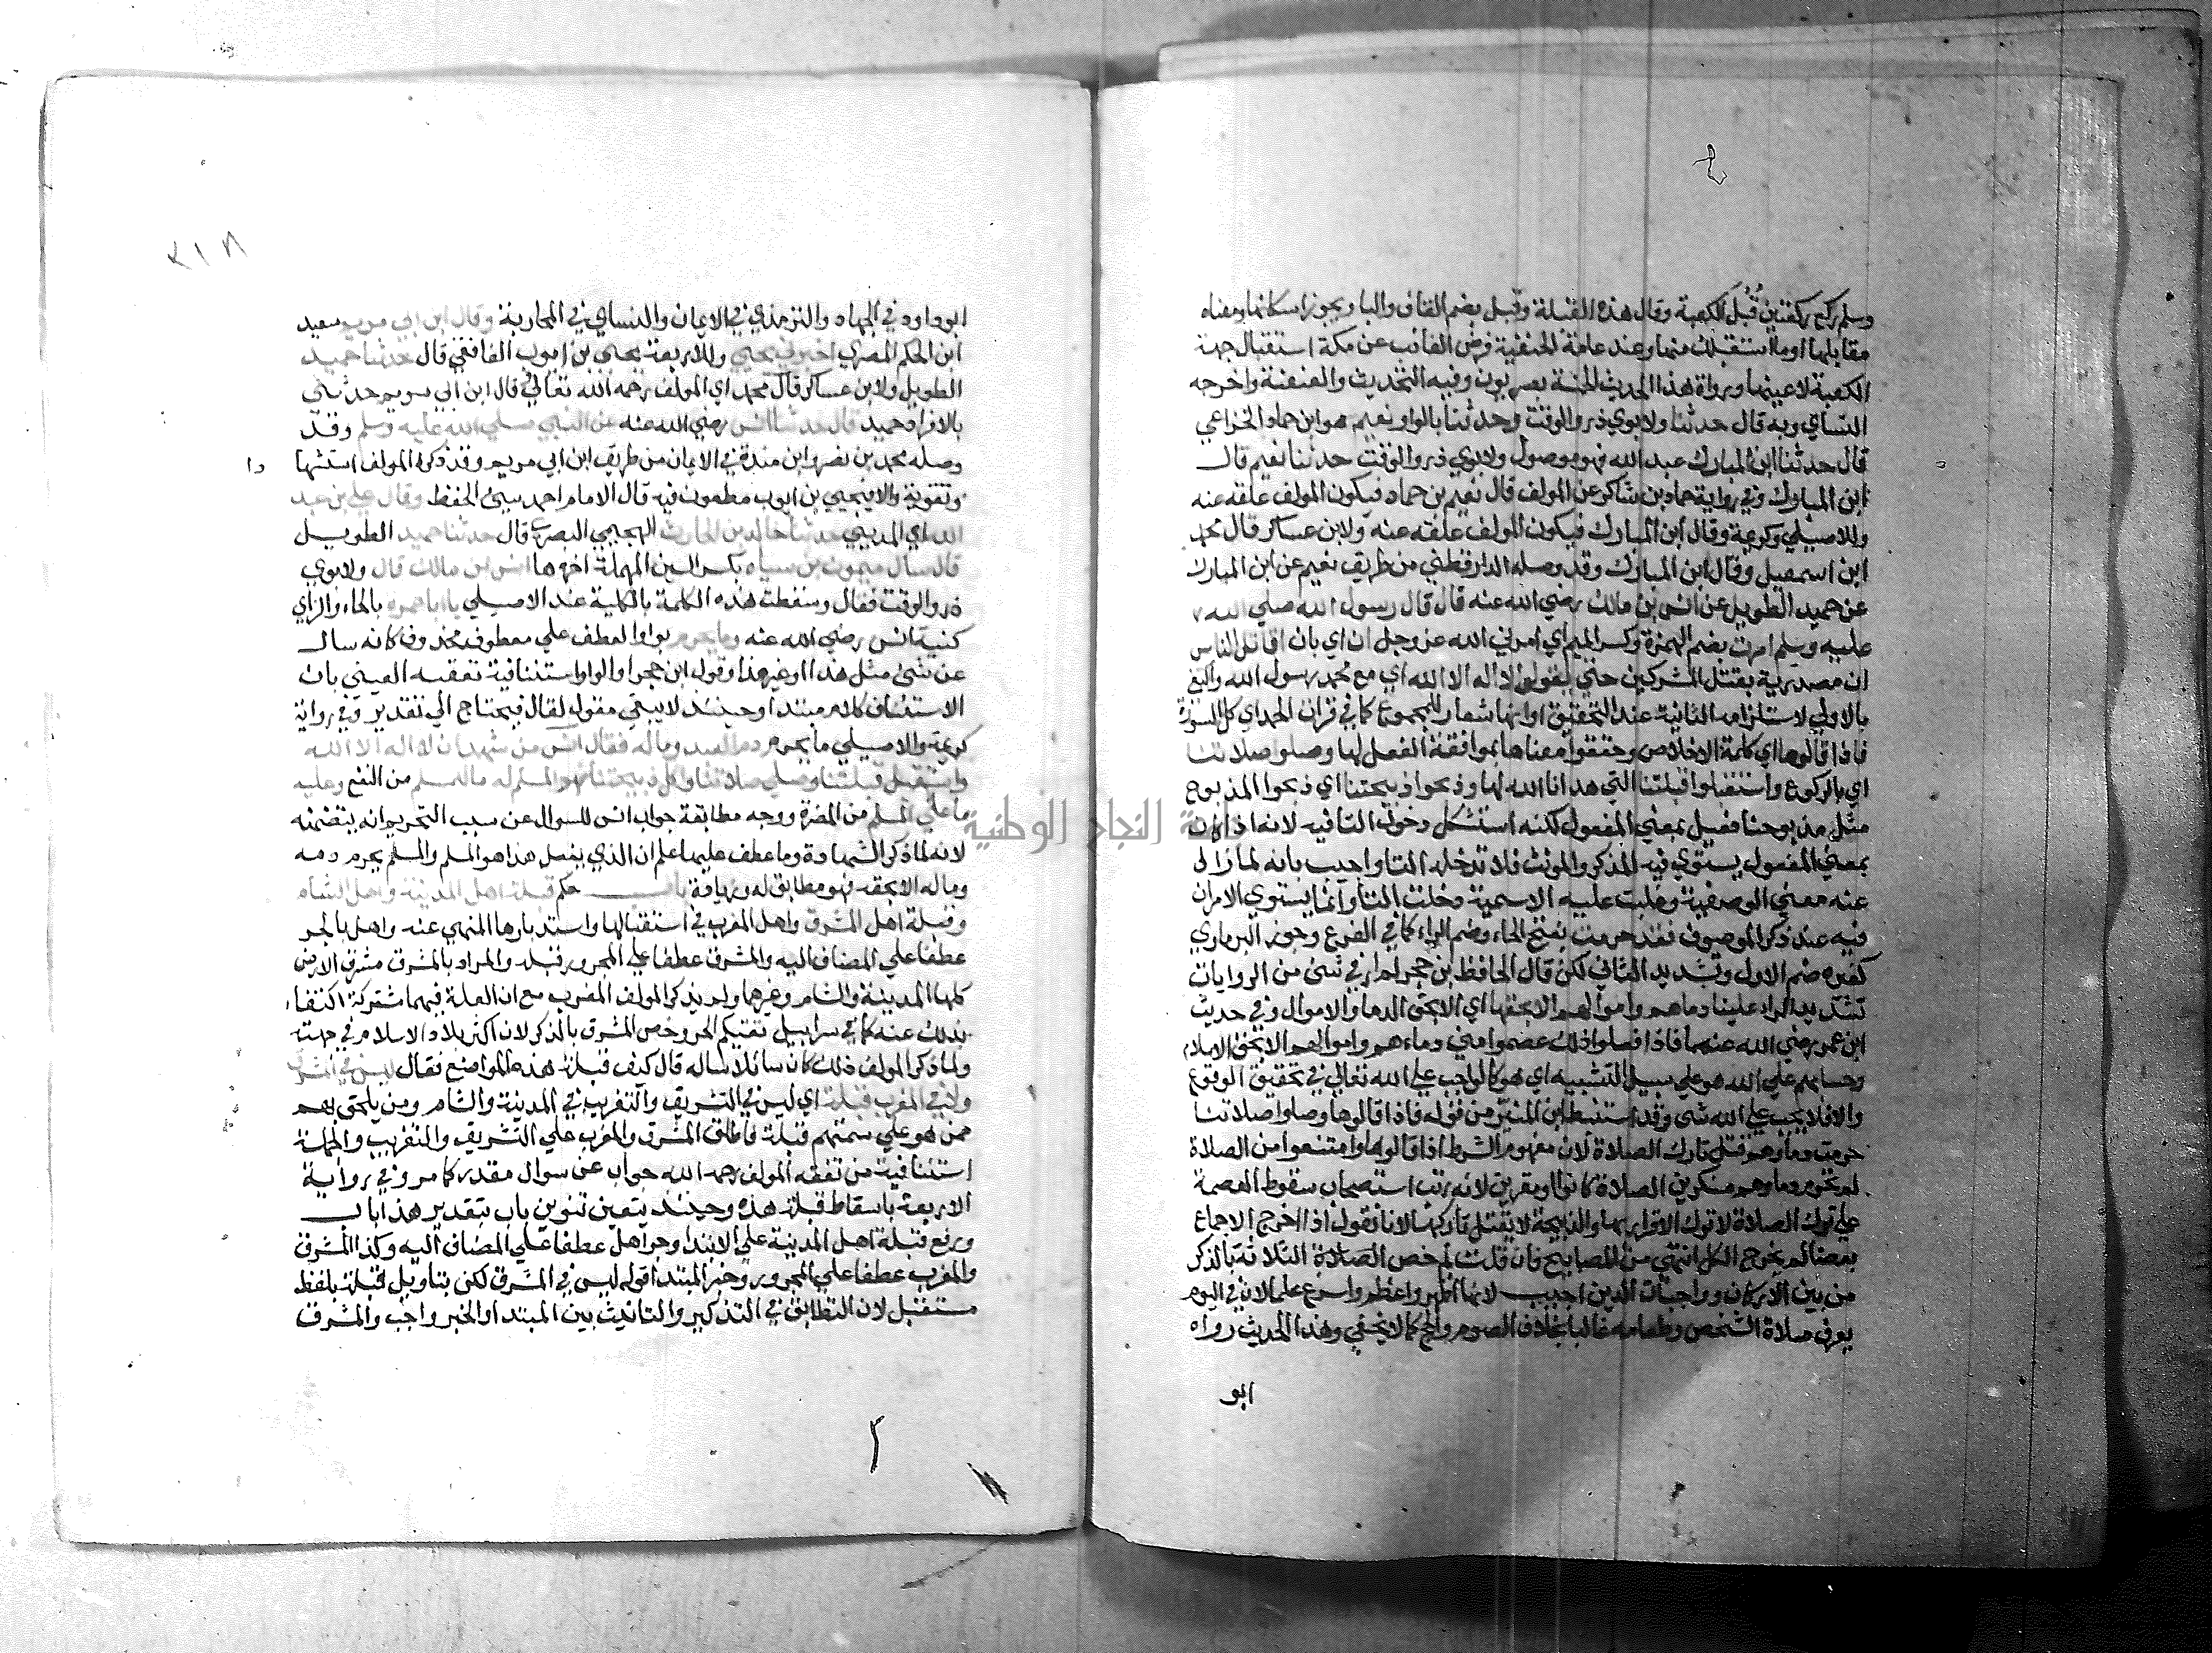 وسلم ركع ركعتين قُبُل الكعبة وقال هذه القبلة وقبل بضم القاف والبا ويجوز اسكانها ومعناه
مقابلها او ما استقبلك منها وعند عامة الحنفية فرض الغائب عن مكة استقبال جهة
الكعبة لا عينها ورواة هذا الحديث الخمسة بصريون وفيه التحديث والعنعنة واخرجه
النساي وبه قال حدثنا ولابوي ذر والوقت وحدثنا بالواو نعيم هو ابن حماد الخزاعي
قال حدثنا ابن المبارك عبد الله فهو موصول ولابوي ذر والوقت حدثنا نعيم قال
ابن المبارك وفي رواية حماد بن شاكر عن المولف قال نعيم بن حماد فيكون المولف علقه عنه
وللاصيلي وكريمة وقال ابن المبارك فيكون المولف علقه عنه ولابن عساكر قال محمد
ابن اسمعيل وقال ابن المبارك وقد وصله الدارقطني من طريق نعيم عن ابن المبارك
عن حميد الطويل عن انس بن مالك رضي الله عنه قال قال رسول الله صلي الله
عليه وسلم امرت بضم الهمزة وكسر الميم اي امرني الله عز وجل ان اي بان اقاتل الناس
ان مصدرية بقتل المشركين حتي يقولوا لا اله الا الله اي مع محمد رسول الله واكتفي
بالاولي لاستلزامه الثانية عند التحقيق او انها شعار للمجموع كما في قرات الحمد اي كل السورة
فاذا قالوها اي كلمة الاخلاص وحققوا معناها بموافقة الفعل لها وصلوا صلاتنا
اي بالركوع واستقبلوا قبلتنا التي هدانا الله لها وذبحوا ذبيحتنا اي ذبحوا المذبوح
مثل مذبوحنا فعيل بمعني المفعول لكنه استشكل دخول التا فيه لانه اذا كان
بمعني المفعول يستوي فيه المذكر والمونث فلا تدخله التا واجيب بانه لما زال
عنه معني الوصفية وغلبت عليه الاسمية دخلت التا وانما يستوي الامران
فيه عند ذكر الموصوف فقد حرمت بفتح الحاء وضم الراء كما في الفرع وجوز البرماوي
كغيره ضم الاول وتشديد الثاني لكن قال الحافظ بن حجر لم ار في شئ من الروايات
تشديد الراء علينا دماهم واموالهم الا بحقها اي الا بحق الدما والاموال وفي حديث
ابن عمر رضي الله عنهما فاذا فعلوا ذلك عصموا مني دماءهم واموالهم الا بحق الاسلام
وحسابهم علي الله هو علي سبيل التشبيه اي هو كالواجب علي الله تعالي في تحقيق الوقوع
والا فلا يجب علي الله شي وقد استنبط ابن المنير من قوله فاذا قالوها وصلوا صلاتنا
حرمت دماوهم قتل تارك الصلاة لان مفهوم الشرط اذا قالوها وامتنعوا من الصلاة
لم تحرم دماوهم منكرين الصلاة كانوا او مقرين لانه رتب استصحاب سقوط العصمة
علي ترك الصلاة لا ترك الاقرار بها والذبيحة لا يقتل تاركها لانا نقول اذا اخرج الاجماع
بعضا لم يخرج الكل انتهي من المصابيح فان قلت لم خص الصلاة الثلاثة بالذكر
من بين الاركان وواجبات الدين اجيب لانها اظهر واعظم واسرع علما لان في اليوم
يعرف صلاة الشخص وطعامه غالبا بخلاف الصوم والحج كما لا يخفي وهذا الحديث رواه
ابو
٢١٨
ابو داود في الجهاد والترمذي في الايمان والنساي في المحاربة وقال ابن ابي مريم سعيد
ابن الحكم المصري اخبرني يحيي وللاربعة يحيي بن ايوب الغافقي قال حدثنا حميد
الطويل ولابن عساكر قال محمد اي المولف رحمه الله تعالي قال ابن ابي مريم حدثني
بالافراد حميد قال حدثنا انس رضي الله عنه عن النبي صلي الله عليه وسلم وقد
وصله محمد بن نصر وابن مندة في الايمان من طريق ابن ابي مريم وقد ذكره المولف استشهادا
وتقوية والا فيحيي بن ايوب مطعون فيه قال الامام احمد سيئ الحفظ وقال علي بن عبد
الله اي المديني حدثنا خالد بن الحارث الهجيمي البصري قال حدثنا حميد الطويل
قال سال ميمون بن سياه بكسر السين المهملة اخره ها انس بن مالك قال ولابوي
ذر والوقت فقال وسقطت هذه الكلمة بالكلية عند الاصيلي يا ابا حمزة بالحاء والزاي
كنية انس رضي الله عنه وما يحرم بواو العطف علي معطوف محذوف كانه سال
عن شئ مثل هذا او غير هذا وقول ابن حجر او الواو استئنافية تعقبه العيني بان
الاستئناف كلام مبتدا وحينئذ لا يبقي مقول لقال فيحتاج الي تقدير وفي رواية
كريمة والاصيلي ما يحرم دم العبد وماله فقال انس من شهد ان لا اله الا الله
واستقبل قبلتنا وصلي صلاتنا واكل ذبيحتنا فهو المسلم له ما للمسلم من النفع وعليه
ما علي المسلم من المضرة ووجه مطابقة جواب انس للسوال عن سبب التحريم انه يتضمنه
لانه لما ذكر الشهادة وما عطف عليها علم ان الذي يفعل هذا هو المسلم والمسلم يحرم دمه
وماله الا بحقه فهو مطابق له وزيادة باب حكم قبلة اهل المدينة واهل الشام
وقبلة اهل المشرق واهل المغرب في استقبالها واستدبارها المنهي عنه واهل بالجر
عطفا علي المضاف اليه والمشرق عطفا علي المجرور قبله والمراد بالمشرق مشرق الارض
كلها المدينة والشام وغيرهما ولم يذكر المولف المغرب مع ان العلة فيهما مشتركة اكتفاء
بذلك عنه كما في سرابيل تقيكم الحر وخص المشرق بالذكر لان اكثر بلاد الاسلام في جهته
ولما ذكر المولف ذلك كان سائلا ساله قال كيف قبلة هذه المواضع فقال ليس في المشرق
ولا في المغرب قبلة اي ليس في التشريق والتغريب في المدينة والشام ومن يلحق بهم
ممن هو علي سمتهم قبلة فاطلق المشرق والمغرب علي التشريق والتغريب والجملة
استئنافية من تفقه المولف رحمه الله جواب عن سوال مقدر كما مر وفي رواية
الاربعة باسقاط قبلة هذه وحينئذ يتعين تنوين باب بتقدير هذا باب
ورفع قبلة اهل المدينة علي الابتدا وجر اهل عطفا علي المضاف اليه وكذا المشرق
والمغرب عطفا علي المجرور وخبر المبتدا قوله ليس في المشرق لكن بتاويل قبلة بلفظ
مستقبل لان التطابق في التذكير والتانيث بين المبتدا والخبر واجب والمشرق
النجاح الوطنية